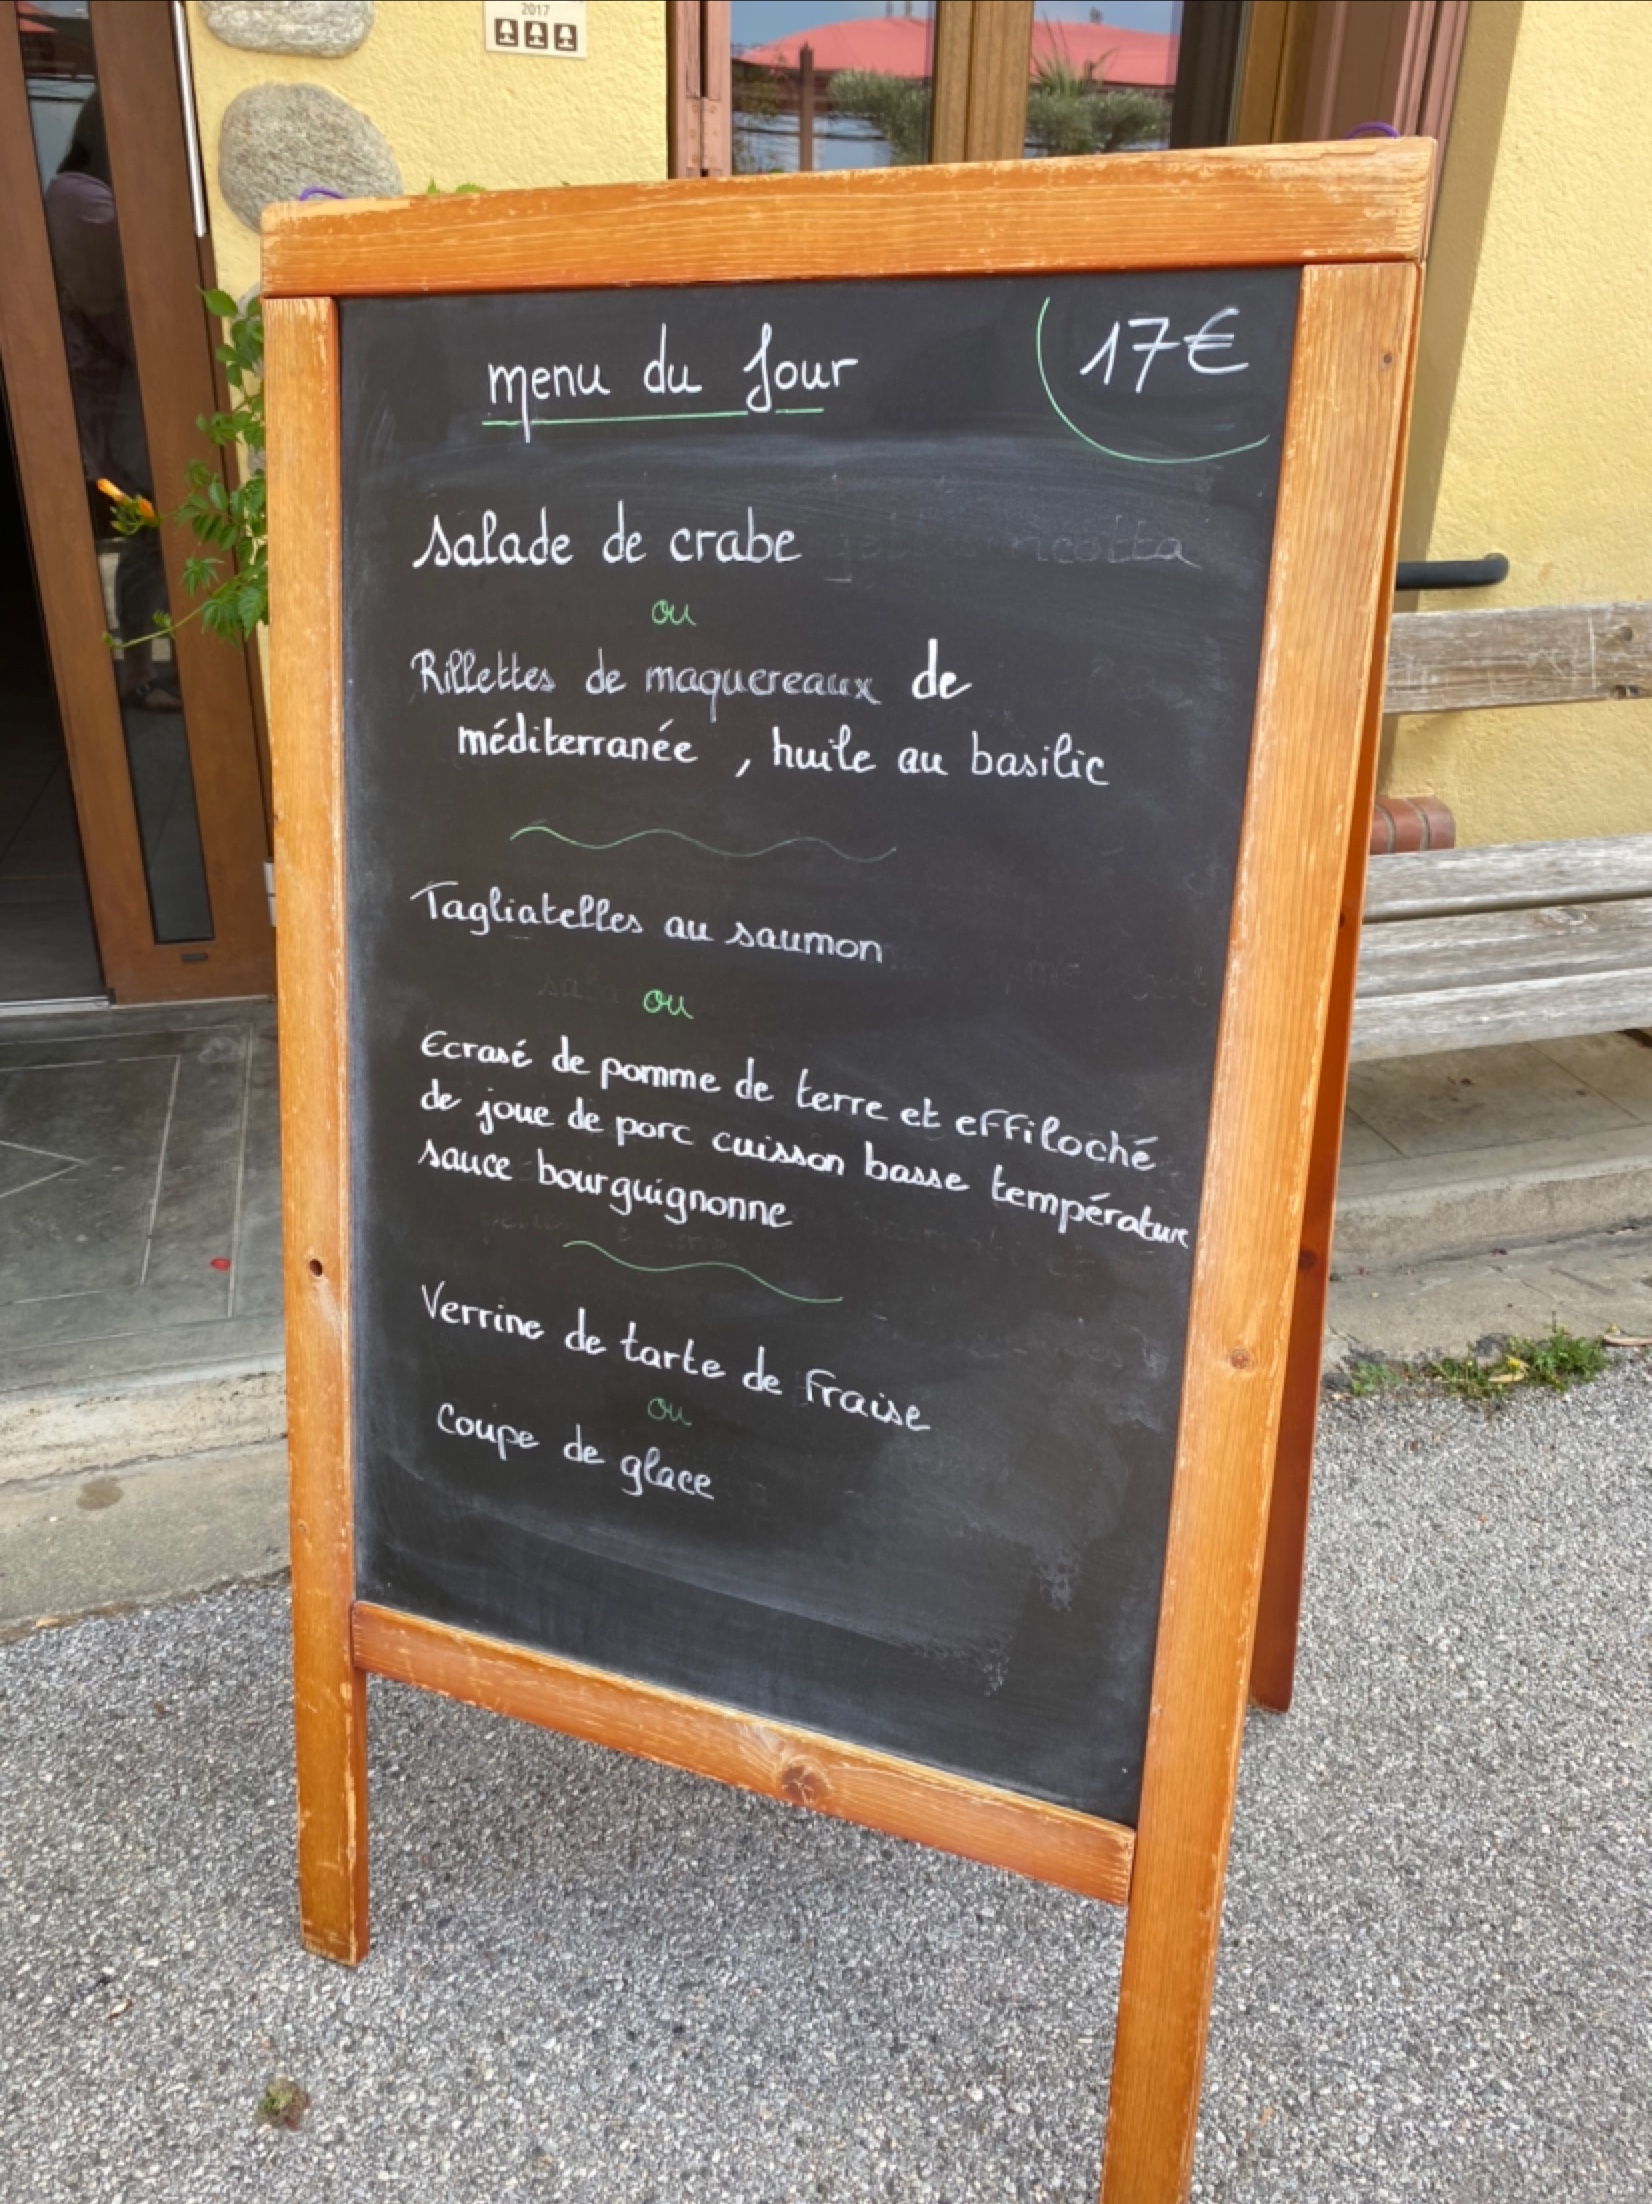 2017
menu du Jour
17€
Salade de crabe
ricotta
ou
Rillettes de maquereaux de
méditerranée , huile au basilic
Tagliatelles au saumon
ou
Ecrasé de pomme de terre et effiloché
de joue de porc cuisson basse température
sauce bourguignonne
Verrine de tarte de fraise
ou
Coupe de glace